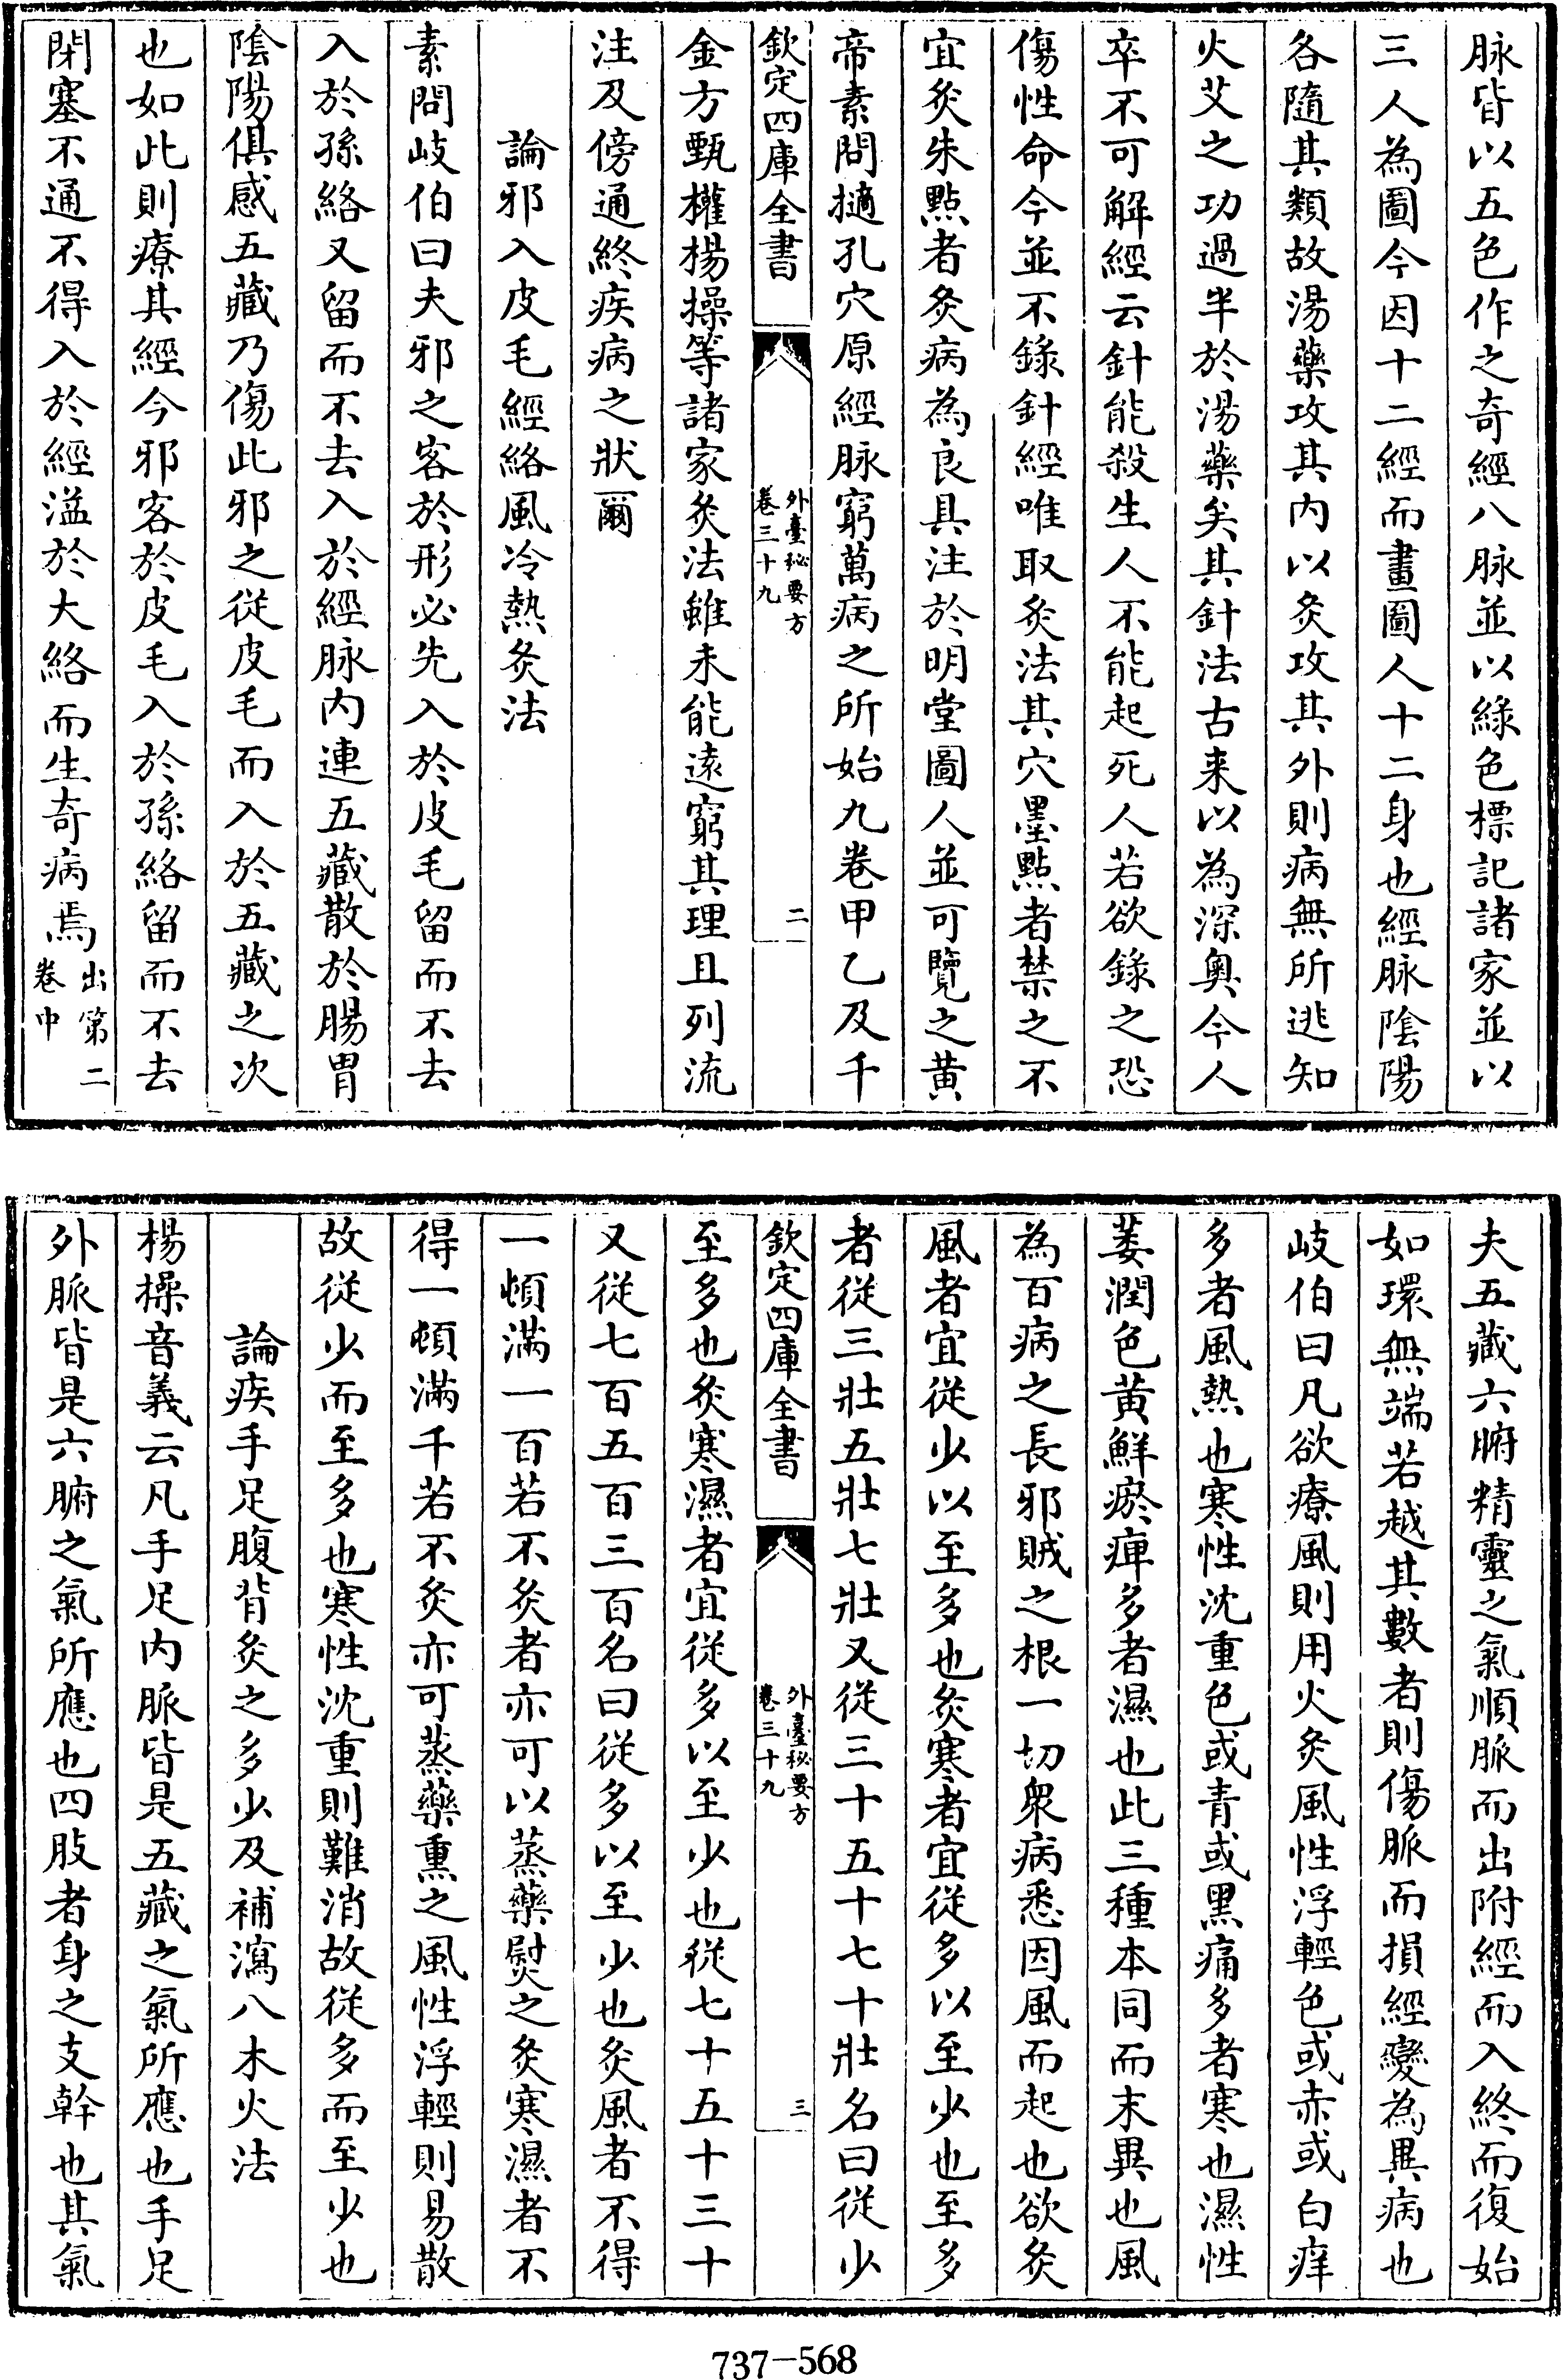 脉皆以五色作之奇經八脉並以綠色標記諸家並以
三人為圖今因十二經而畫圖人十二身也經脉陰陽
各隨其類故湯藥攻其内以灸攻其外則病無所逃知
火艾之功過半於湯藥矣其針法古来以為深奥今人
卒不可解經云針能殺生人不能起死人若欲錄之恐
傷性命今並不錄針經唯取灸法其穴墨點者禁之不
宜灸朱點者灸病為良具注於明堂圖人並可覽之黃
帝素問擿孔穴原經脉窮萬病之所始九卷甲乙及千
欽定四庫全書
外臺秘要方
卷三十九
二
金方甄權楊操等諸家灸法雖未能遠窮其理且列流
注及傍通終疾病之狀爾
論邪入皮毛經絡風冷熱灸法
素問岐伯曰夫邪之客於形必先入於皮毛留而不去
入於孫絡又留而不去入於經脉内連五藏散於腸胃
陰陽俱感五藏乃傷此邪之從皮毛而入於五藏之次
也如此則療其經今邪客於皮毛入於孫絡留而不去
閉塞不通不得入於經溢於大絡而生奇病焉出第二
卷中
夫五藏六腑精靈之氣順脈而出附經而入終而復始
如環無端若越其數者則傷脈而損經變為異病也
岐伯曰凡欲療風則用火灸風性浮輕色或赤或白痒
多者風熱也寒性沈重色或青或黑痛多者寒也濕性
萎潤色黃鮮瘀痺多者濕也此三種本同而末異也風
為百病之長邪賊之根一切衆病悉因風而起也欲灸
風者宜從少以至多也灸寒者宜從多以至少也至多
者從三壯五壯七壯又從三十五十七十壯名曰從少
欽定四庫全書
外臺秘要方
卷三十九
三
至多也灸寒濕者宜從多以至少也從七十五十三十
又從七百五百三百名曰從多以至少也灸風者不得
一頓滿一百若不灸者亦可以蒸藥熨之灸寒濕者不
得一頓滿千若不灸亦可蒸藥熏之風性浮輕則易散
故從少而至多也寒性沈重則難消故從多而至少也
論疾手足腹背灸之多少及補瀉八木火法
楊操音義云凡手足内脈皆是五藏之氣所應也手足
外脈皆是六腑之氣所應也四肢者身之支幹也其氣
737-568